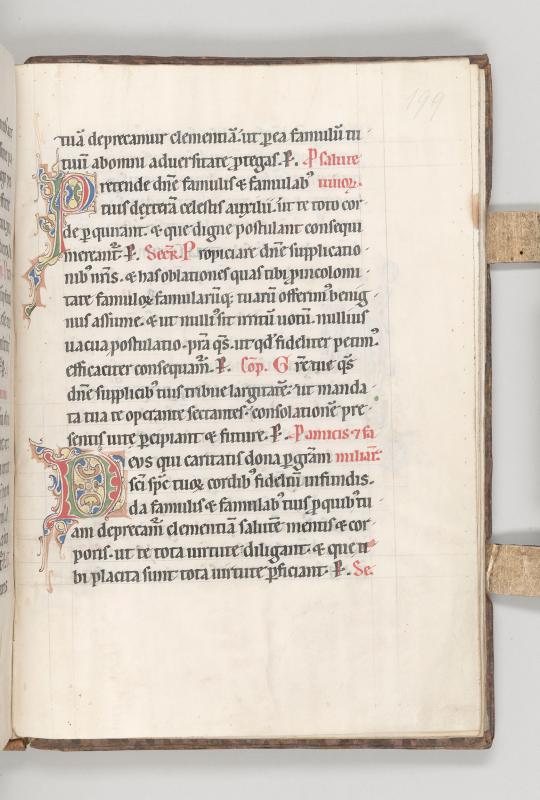 199
tuā deprecamur clementiā. ut ꝑ ea famulū tu
tuū ab omni adversitate ꝓtegas. P̲. P salute
Pretende dn̄e famulis & famulab᷒ uiuoꝝ.
tuis dexterā celestis auxilii. ut te toto cor
de ꝑquirant. & que digne postulant consequi
mereant᷑. P̲. Secr̄. Propiciare dn̄e supplicatio
nib᷒ nr̄is. & has oblationes quas tibi ꝑ incolomi
tate famuloꝝ famularūq; tuarū offerim᷒ benig
nus assume. & ut nulli᷒ sit irritū uotū. nullius
uacua postulatio. pr̄a qs̄. ut qd̓ fideliter petim᷒.
efficaciter consequam᷑. P̲. Cōp. Gr̄e tue qs̄
dn̄e supplicib᷒ tuis tribue largitatē. ut manda
ta tua te operante sectantes. consolationē pre
sentis uite ꝑcipiant & future. P̲. P amicis ⁊ fa
Deus qui caritatis dona ꝑ gr̄am miliar̄.
sc̄i sp̄c tuoꝝ cordib᷒ fideliū infundis.
da famulis & famulab᷒ tuis ꝓ quib᷒ tu
am deprecam᷑ clementiā salutē mentis & cor
poris. ut te tota uirtute diligant. & que ti
bi placita sunt tota uirtute ꝑficiant. P̲. Se.